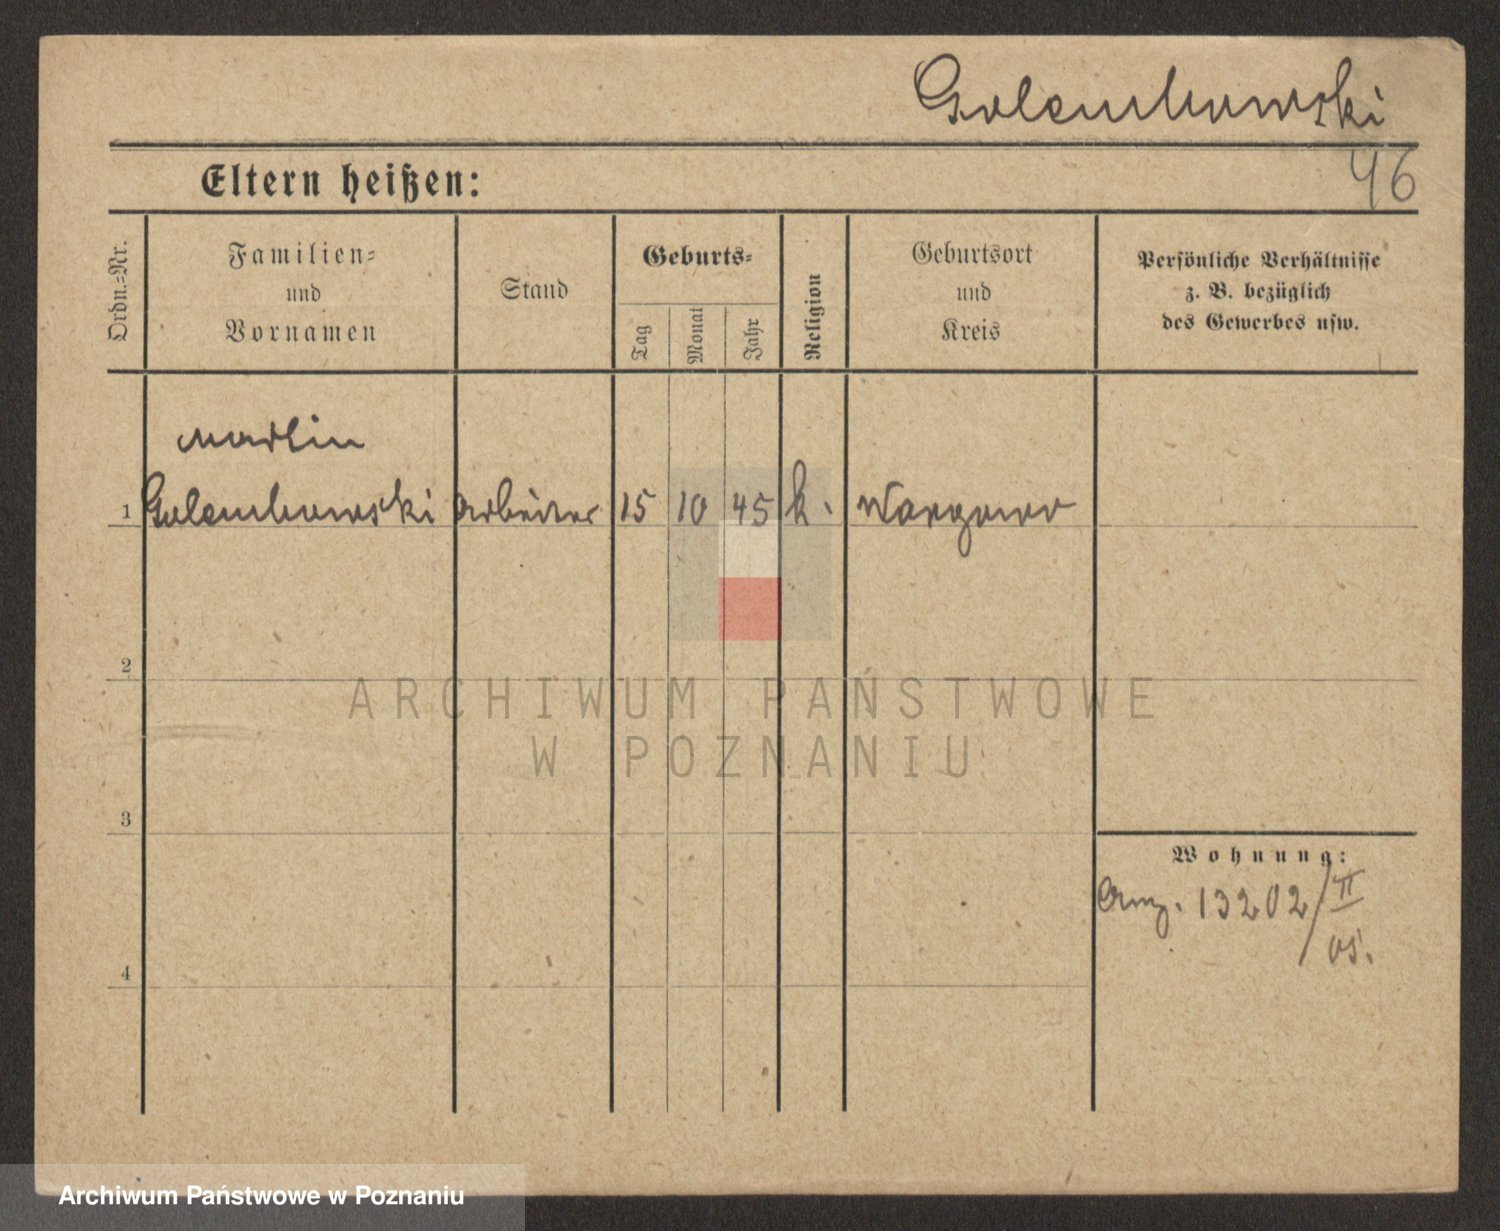 Golembowski
46
Eltern heißen:
Ordn.=Nr.
Familien=
und
Vornamen
Stand
Geburts=
Tag
Monat
Jahr
Religion
Geburtsort
und
Kreis
Persönliche Verhältnisse
z. B. bezüglich
des Gewerbes usw.
Martin
1 Golembowski Arbeiter 15 10 45 k. Wargowo
2
ARCHIWUM PAŃSTWOWE
W POZNANIU
3
Wohnung:
Anz. 13202/II
05.
4
Archiwum Państwowe w Poznaniu